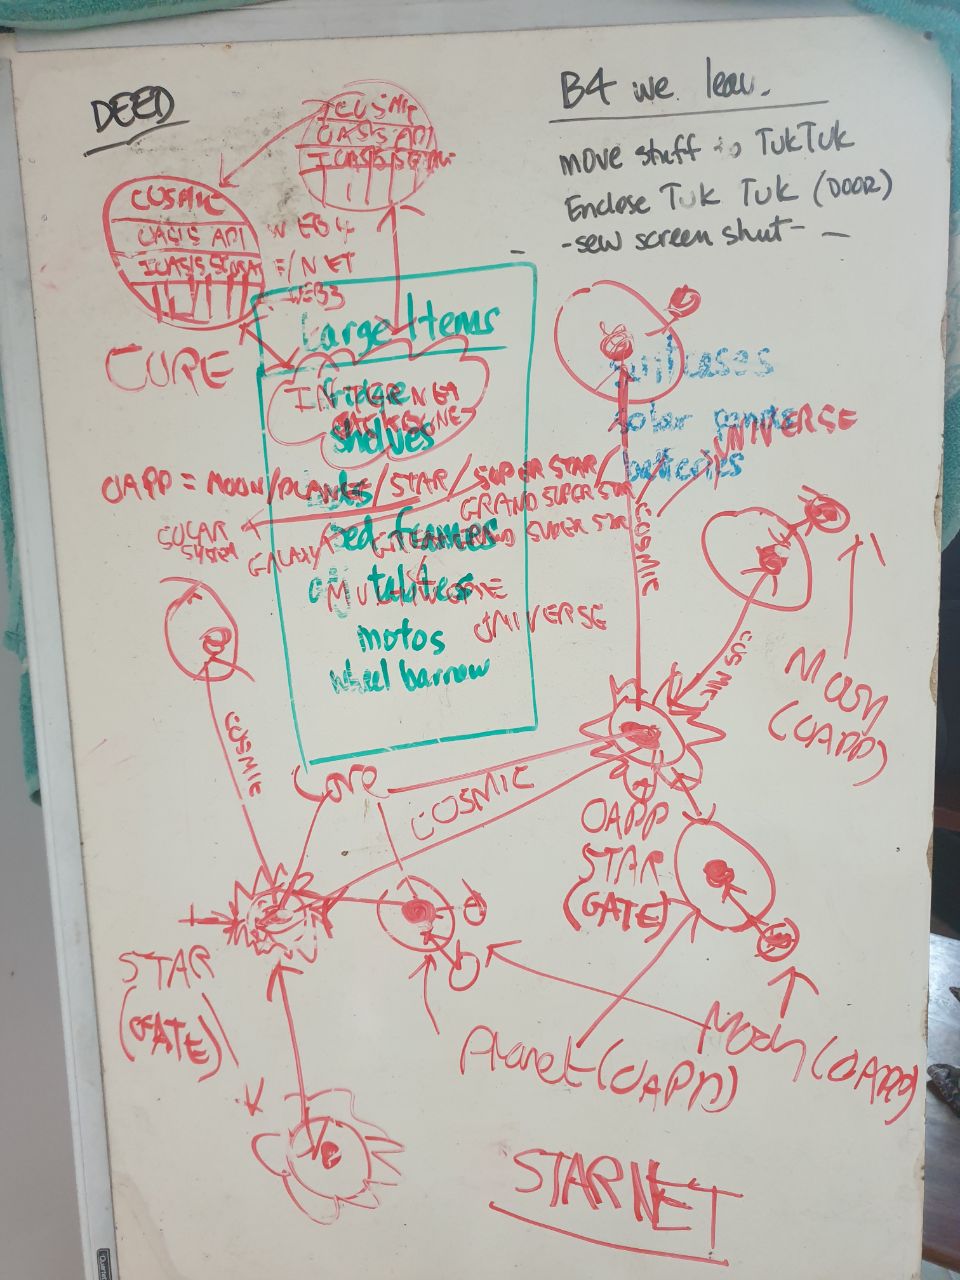 DEED
B4 we leav.
move stuff to TukTuk
Enclose Tuk Tuk (DOOR)
-sew screen shut-
COSMIC
OASIS API
COSMIC
OASIS API
WEB4
WEB3
CORE
Large Items
fridge
shelves
bed frames
motos
wheel barrow
suitcases
solar panels
batteries
OAPP = MOON/PLANET/STAR/SUPER STAR/
GRAND SUPER STAR
UNIVERSE
SOLAR
SYSTEM
GALAXY
GRAND SUPER STAR
MULTIVERSE
OMIVERSE
COSMIC
COSMIC
COSMIC
Moon
(OAPP)
Core
COSMIC
OAPP
STAR
(GATE)
STAR
(GATE)
Planet (OAPP)
Moon (OAPP)
STARNET